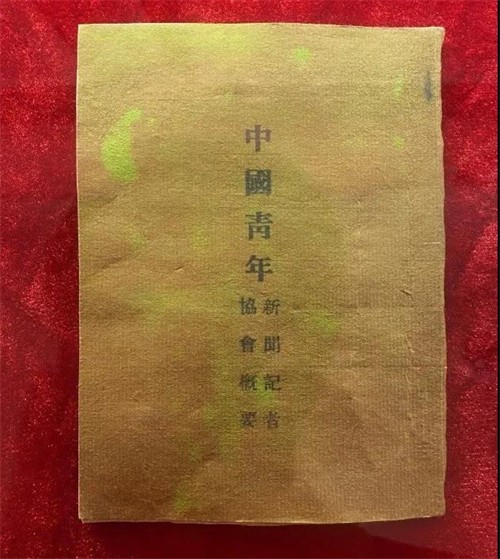 中國青年
新聞記者
協會概要